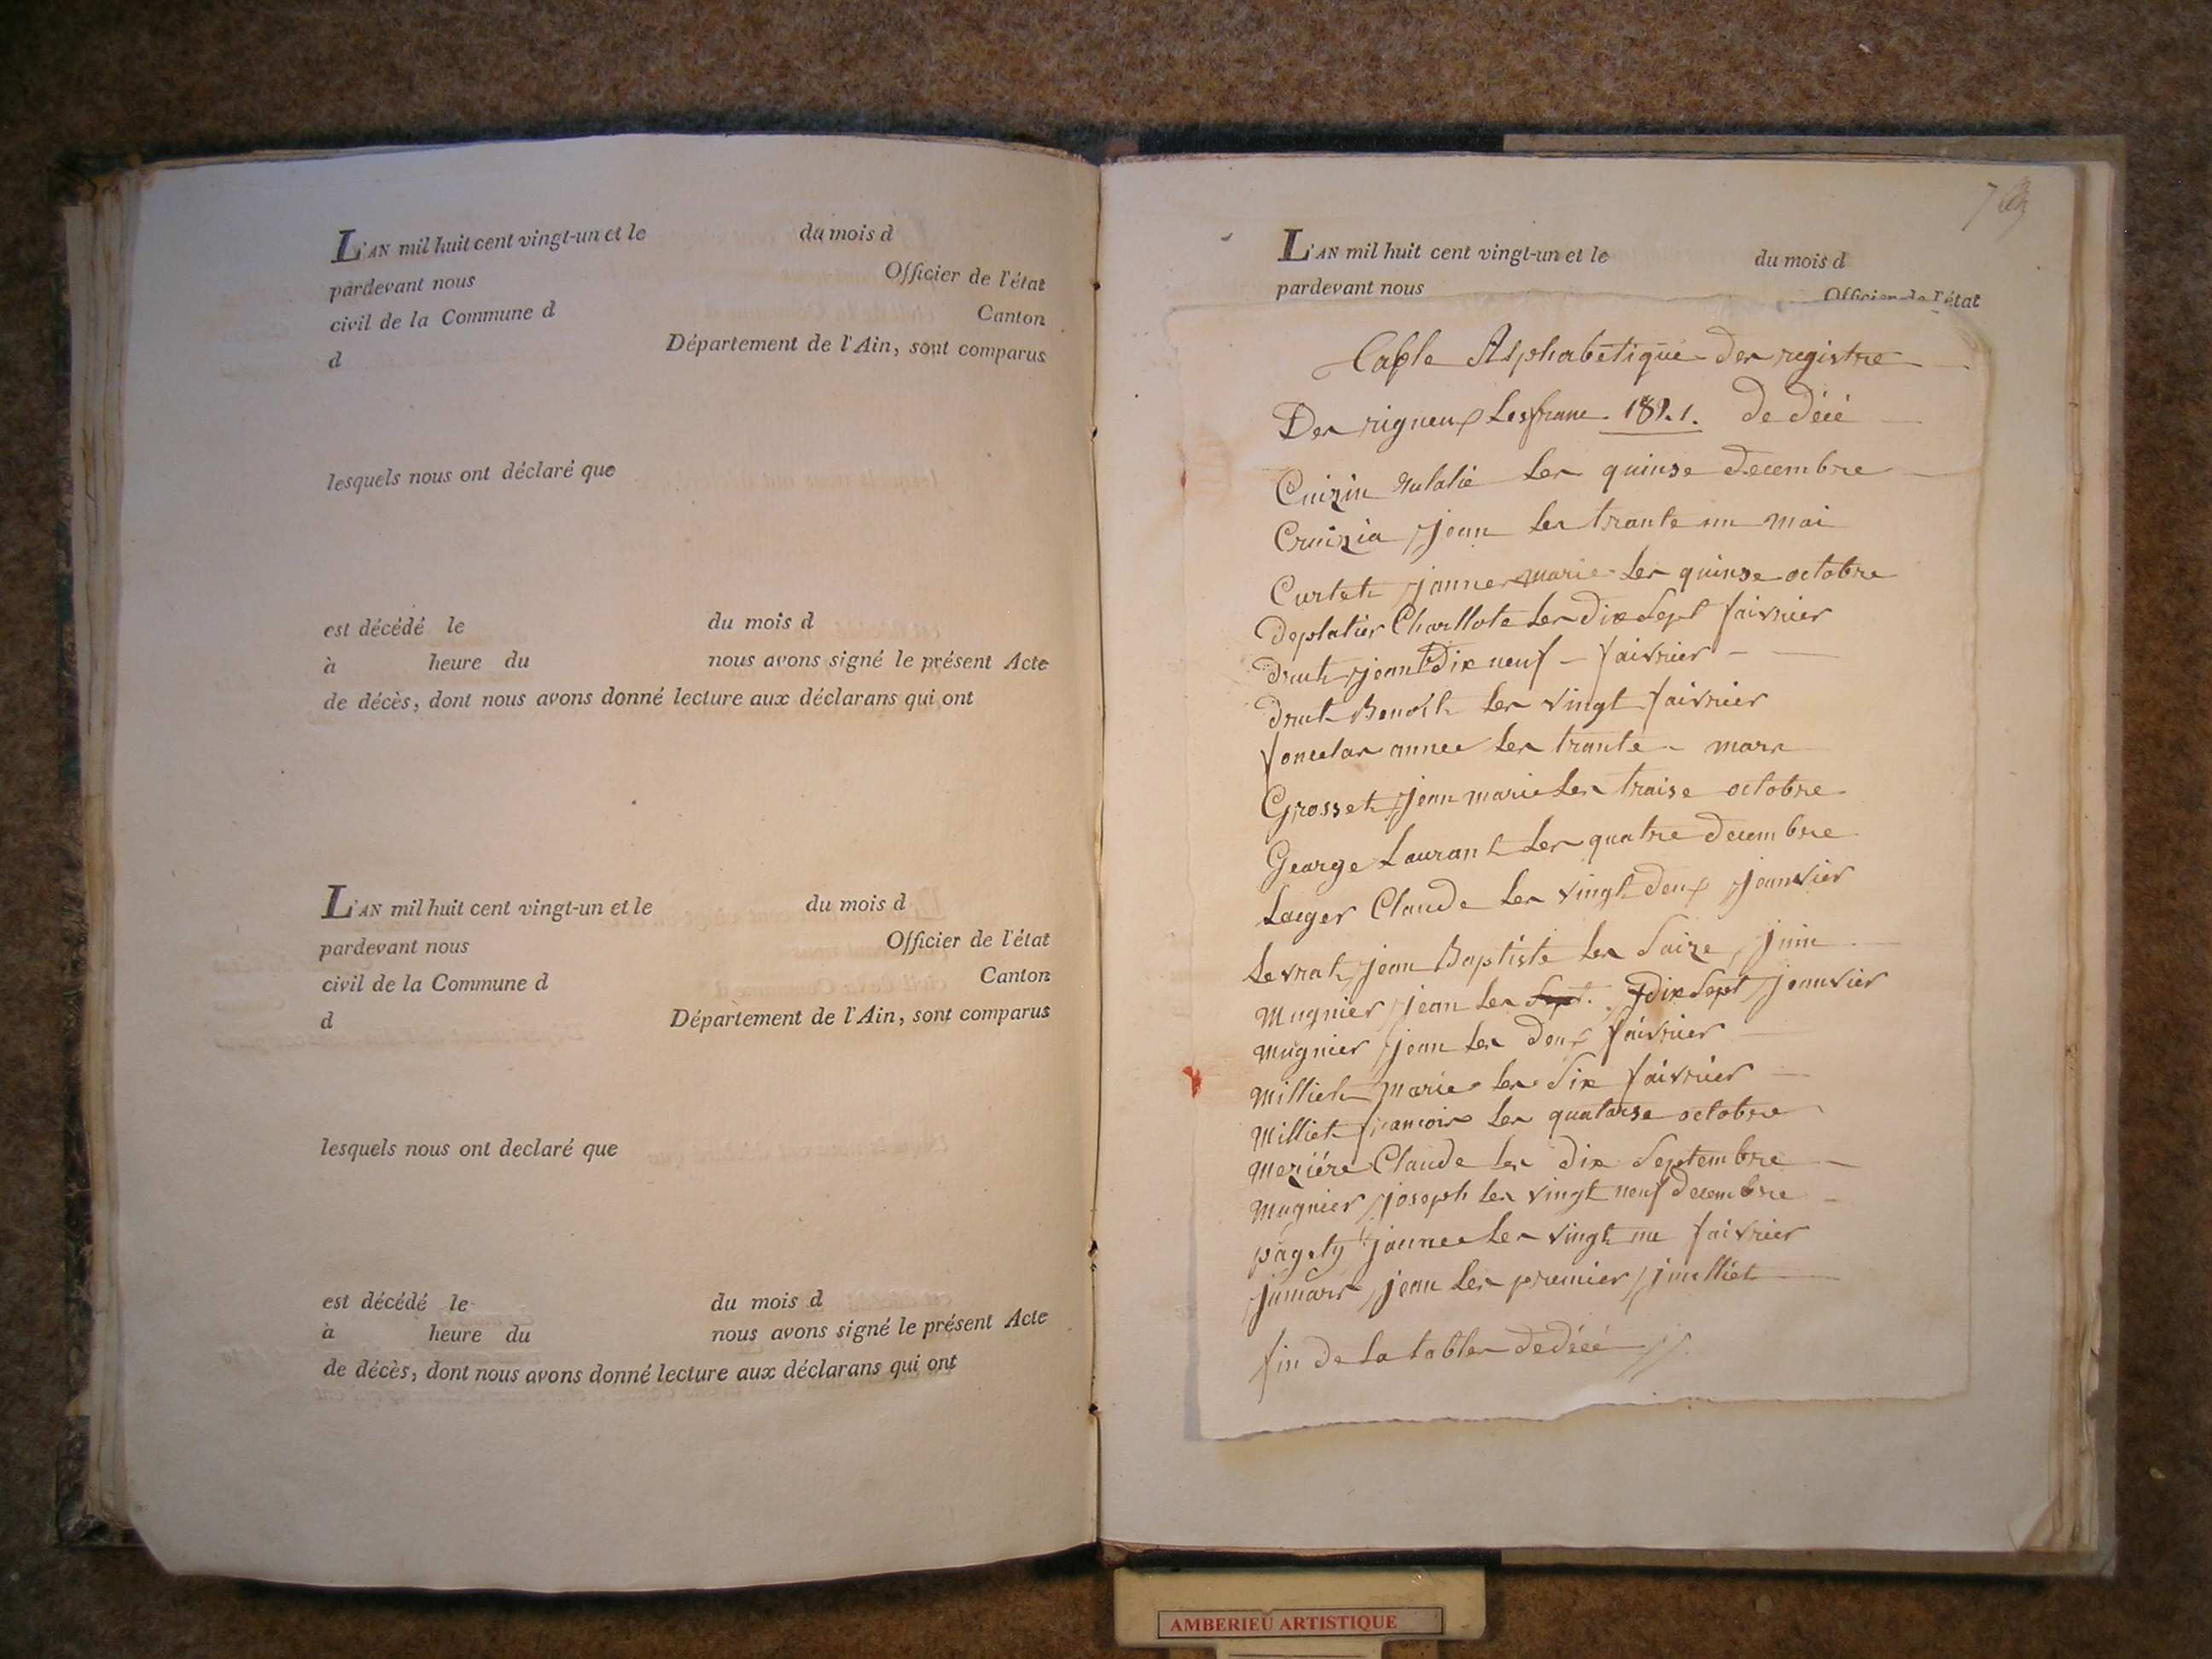 L'AN mil huit cent vingt-un et le du mois d
pardevant nous Officier de l'état
civil de la Commune d Canton
d Département de l'Ain, sont comparus
lesquels nous ont déclaré que
est décédé le du mois d
à heure du nous avons signé le présent Acte
de décès, dont nous avons donné lecture aux déclarans qui ont
L'AN mil huit cent vingt-un et le du mois d
pardevant nous Officier de l'état
civil de la Commune d Canton
d Département de l'Ain, sont comparus
lesquels nous ont declaré que
est décédé le du mois d
à heure du nous avons signé le présent Acte
de décès, dont nous avons donné lecture aux déclarans qui ont
L'AN mil huit cent vingt-un et le du mois d
pardevant nous Officier de l'état
Table Alphabetique des registre
De rigneux Lesfranc 1821. de décé
Cuizin Eulalie Le quinse decembre
Cruizia jean Le trante un mai
Curtet janne marie Le quinse octobre
Deplatier Charllote Le dix Sept faivrier
Drut jean Dix neuf faivrier
Drut Benoit Le vingt faivrier
annee Le trante mars
Grosset jean marie Le traise octobre
George Laurant Le quatre decembre
Laeger Claude Le vingt deux janvier
Levrat jean Baptiste Le Saize juin
Mugnier jean Le Sept. dix Sept janvier
Mugnier jean Le deux faivrier
Milliet marie Le Six faivrier
Milliet francois Le quatorse octobre
Meziére Claude Le dix Septembre
Mugnier joseph Le vingt neuf decembre
pagety jannee Le vingt un faivrier
jean Le premier juilliet
fin de La table de décé
AMBERIEU ARTISTIQUE